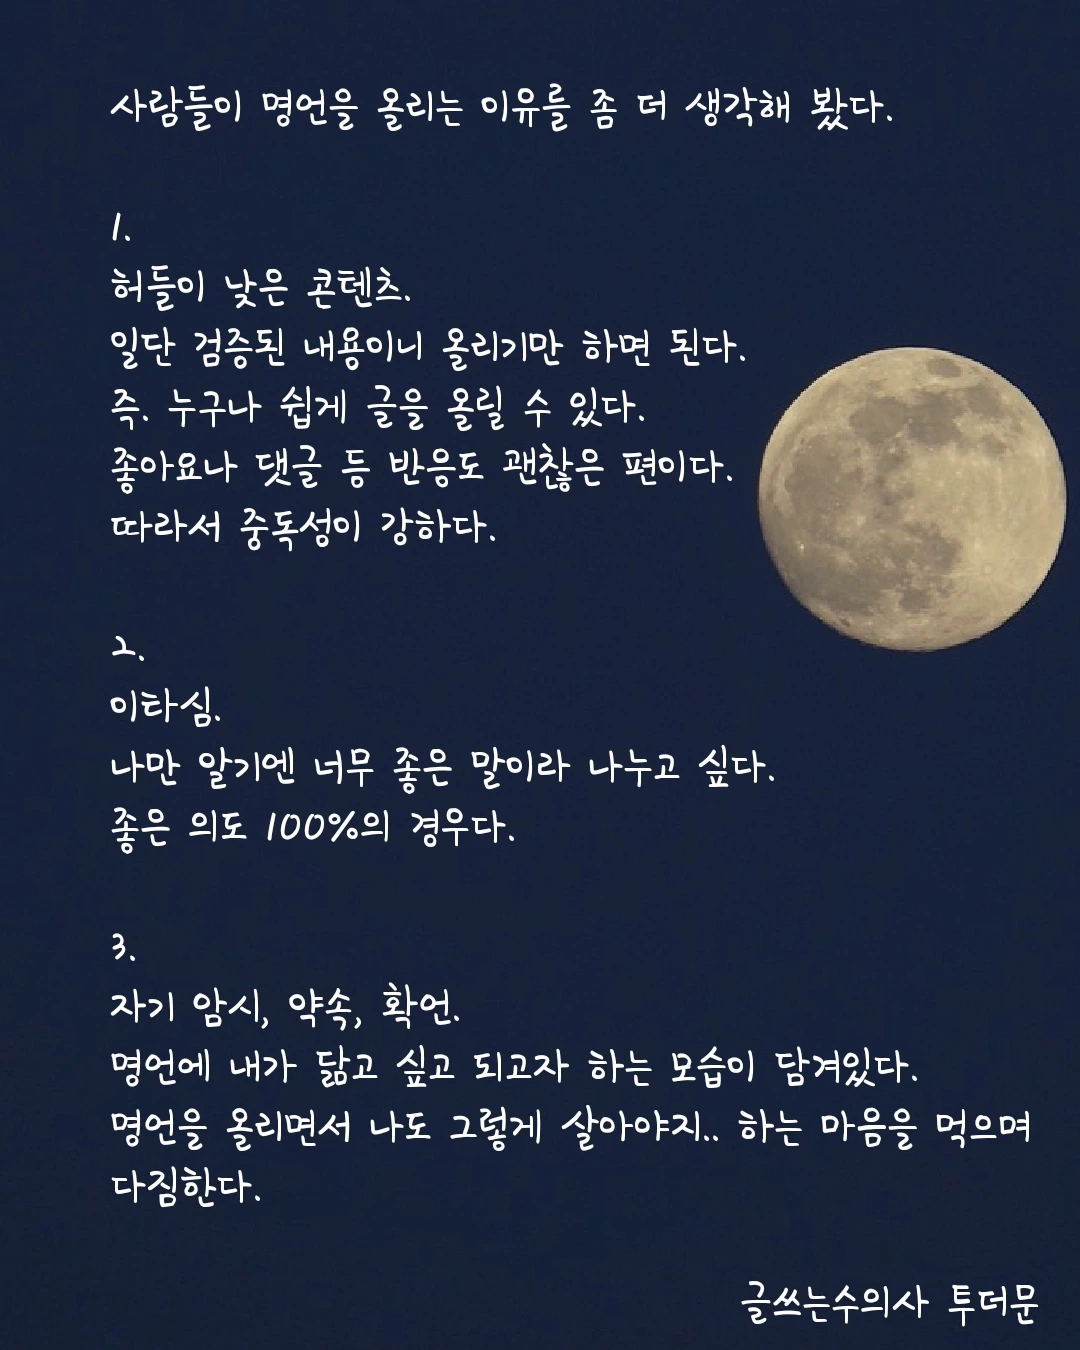 사람들이 명언을 올리는 이유를 좀 더 생각해 봤다.
1.
허들이 낮은 콘텐츠.
일단 검증된 내용이니 올리기만 하면 된다.
즉. 누구나 쉽게 글을 올릴 수 있다.
좋아요나 댓글 등 반응도 괜찮은 편이다.
따라서 중독성이 강하다.
2.
이타심.
나만 알기엔 너무 좋은 말이라 나누고 싶다.
좋은 의도 100%의 경우다.
3.
자기 암시, 약속, 확언.
명언에 내가 닮고 싶고 되고자 하는 모습이 담겨있다.
명언을 올리면서 나도 그렇게 살아야지.. 하는 마음을 먹으며
다짐한다.
글쓰는수의사 투더문